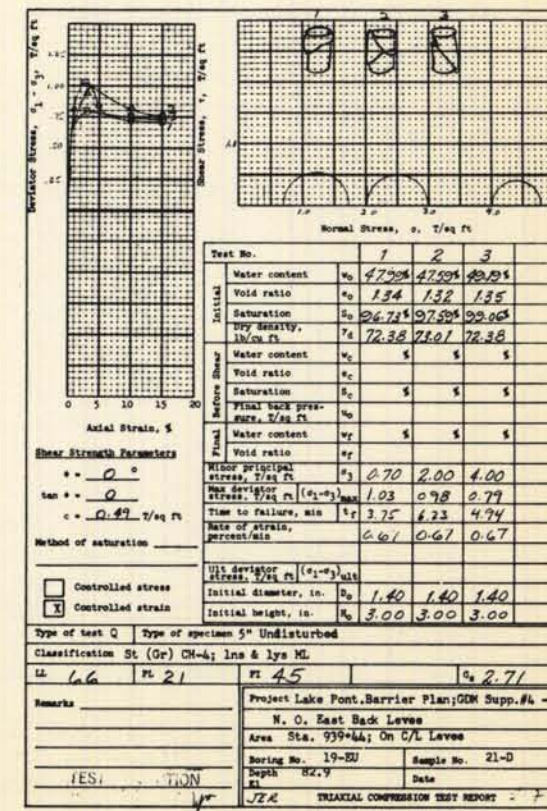 1 2 3
Deviator Stress, σ1 - σ3, T/sq ft
Shear Stress, τ, T/sq ft
1.00
.75
.50
.25
1.0
1.0 2.0 3.0 4.0
Normal Stress, σ, T/sq ft
0 5 10 15 20
Axial Strain, %
Shear Strength Parameters
ϕ = 0 °
tan ϕ = 0
c = 0.49 T/sq ft
Method of saturation
Controlled stress
X Controlled strain
Test No. 1 2 3
Initial
Water content wo 47.99% 47.59% 49.19%
Void ratio eo 1.34 1.32 1.35
Saturation So 96.73% 97.59% 99.06%
Dry density, lb/cu ft γd 72.38 73.01 72.38
Before Shear
Water content wc % % %
Void ratio ec
Saturation Sc % % %
Final back pressure, T/sq ft uo
Final
Water content wf % % %
Void ratio ef
Minor principal stress, T/sq ft σ3 0.70 2.00 4.00
Max deviator stress, T/sq ft (σ1-σ3)max 1.03 0.98 0.79
Time to failure, min tf 3.75 6.23 4.94
Rate of strain, percent/min 0.61 0.67 0.67
Ult deviator stress, T/sq ft (σ1-σ3)ult
Initial diameter, in. Do 1.40 1.40 1.40
Initial height, in. Ho 3.00 3.00 3.00
Type of test Q Type of specimen 5" Undisturbed
Classification St (Gr) CH-4; lns & lys ML
LL 66 PL 21 PI 45 Gs 2.71
Remarks
Project Lake Pont.Barrier Plan;GDM Supp.#4 -
N. O. East Back Levee
Area Sta. 939+44; On C/L Levee
Boring No. 19-EU Sample No. 21-D
Depth 82.9 Date
JER TRIAXIAL COMPRESSION TEST REPORT